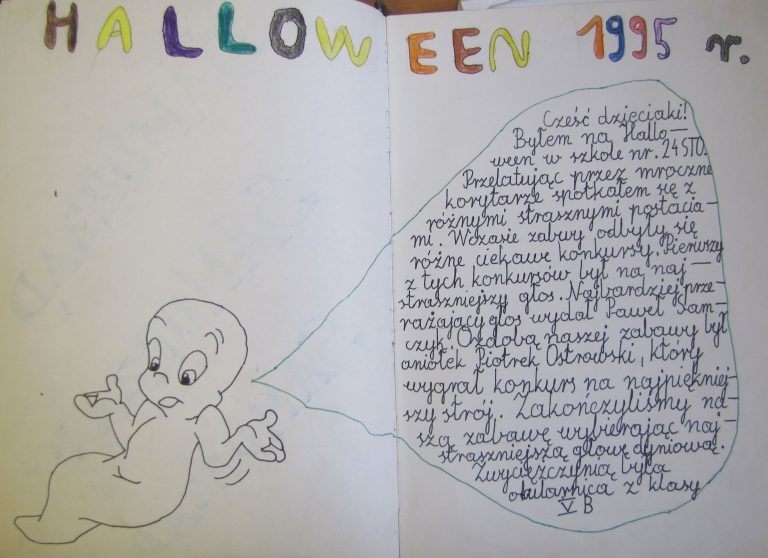 HALLOWEEN 1995 r.
Cześć dzięciaki!
Byłem na Hallo—
ween w szkole nr. 24 STO.
Przelatując przez mroczne
korytarze spotkałem się z
różnymi strasznymi postacia—
mi. Wczasie zabawy odbyły się
różne ciekawe konkursy. Pierwszy
z tych konkursów był na naj—
straszniejszy głos. Najbardziej prze-
rażający głos wydał Paweł Sam-
czyk. Ozdobą naszej zabawy był
aniołek Piotrek Ostrowski, który
wygrał konkurs na najpiękniej-
szy strój. Zakończyliśmy na-
szą zabawę wybierając naj-
straszniejszą głowę dyniową.
Zwyciężczynią była
okularnica z klasy
V B